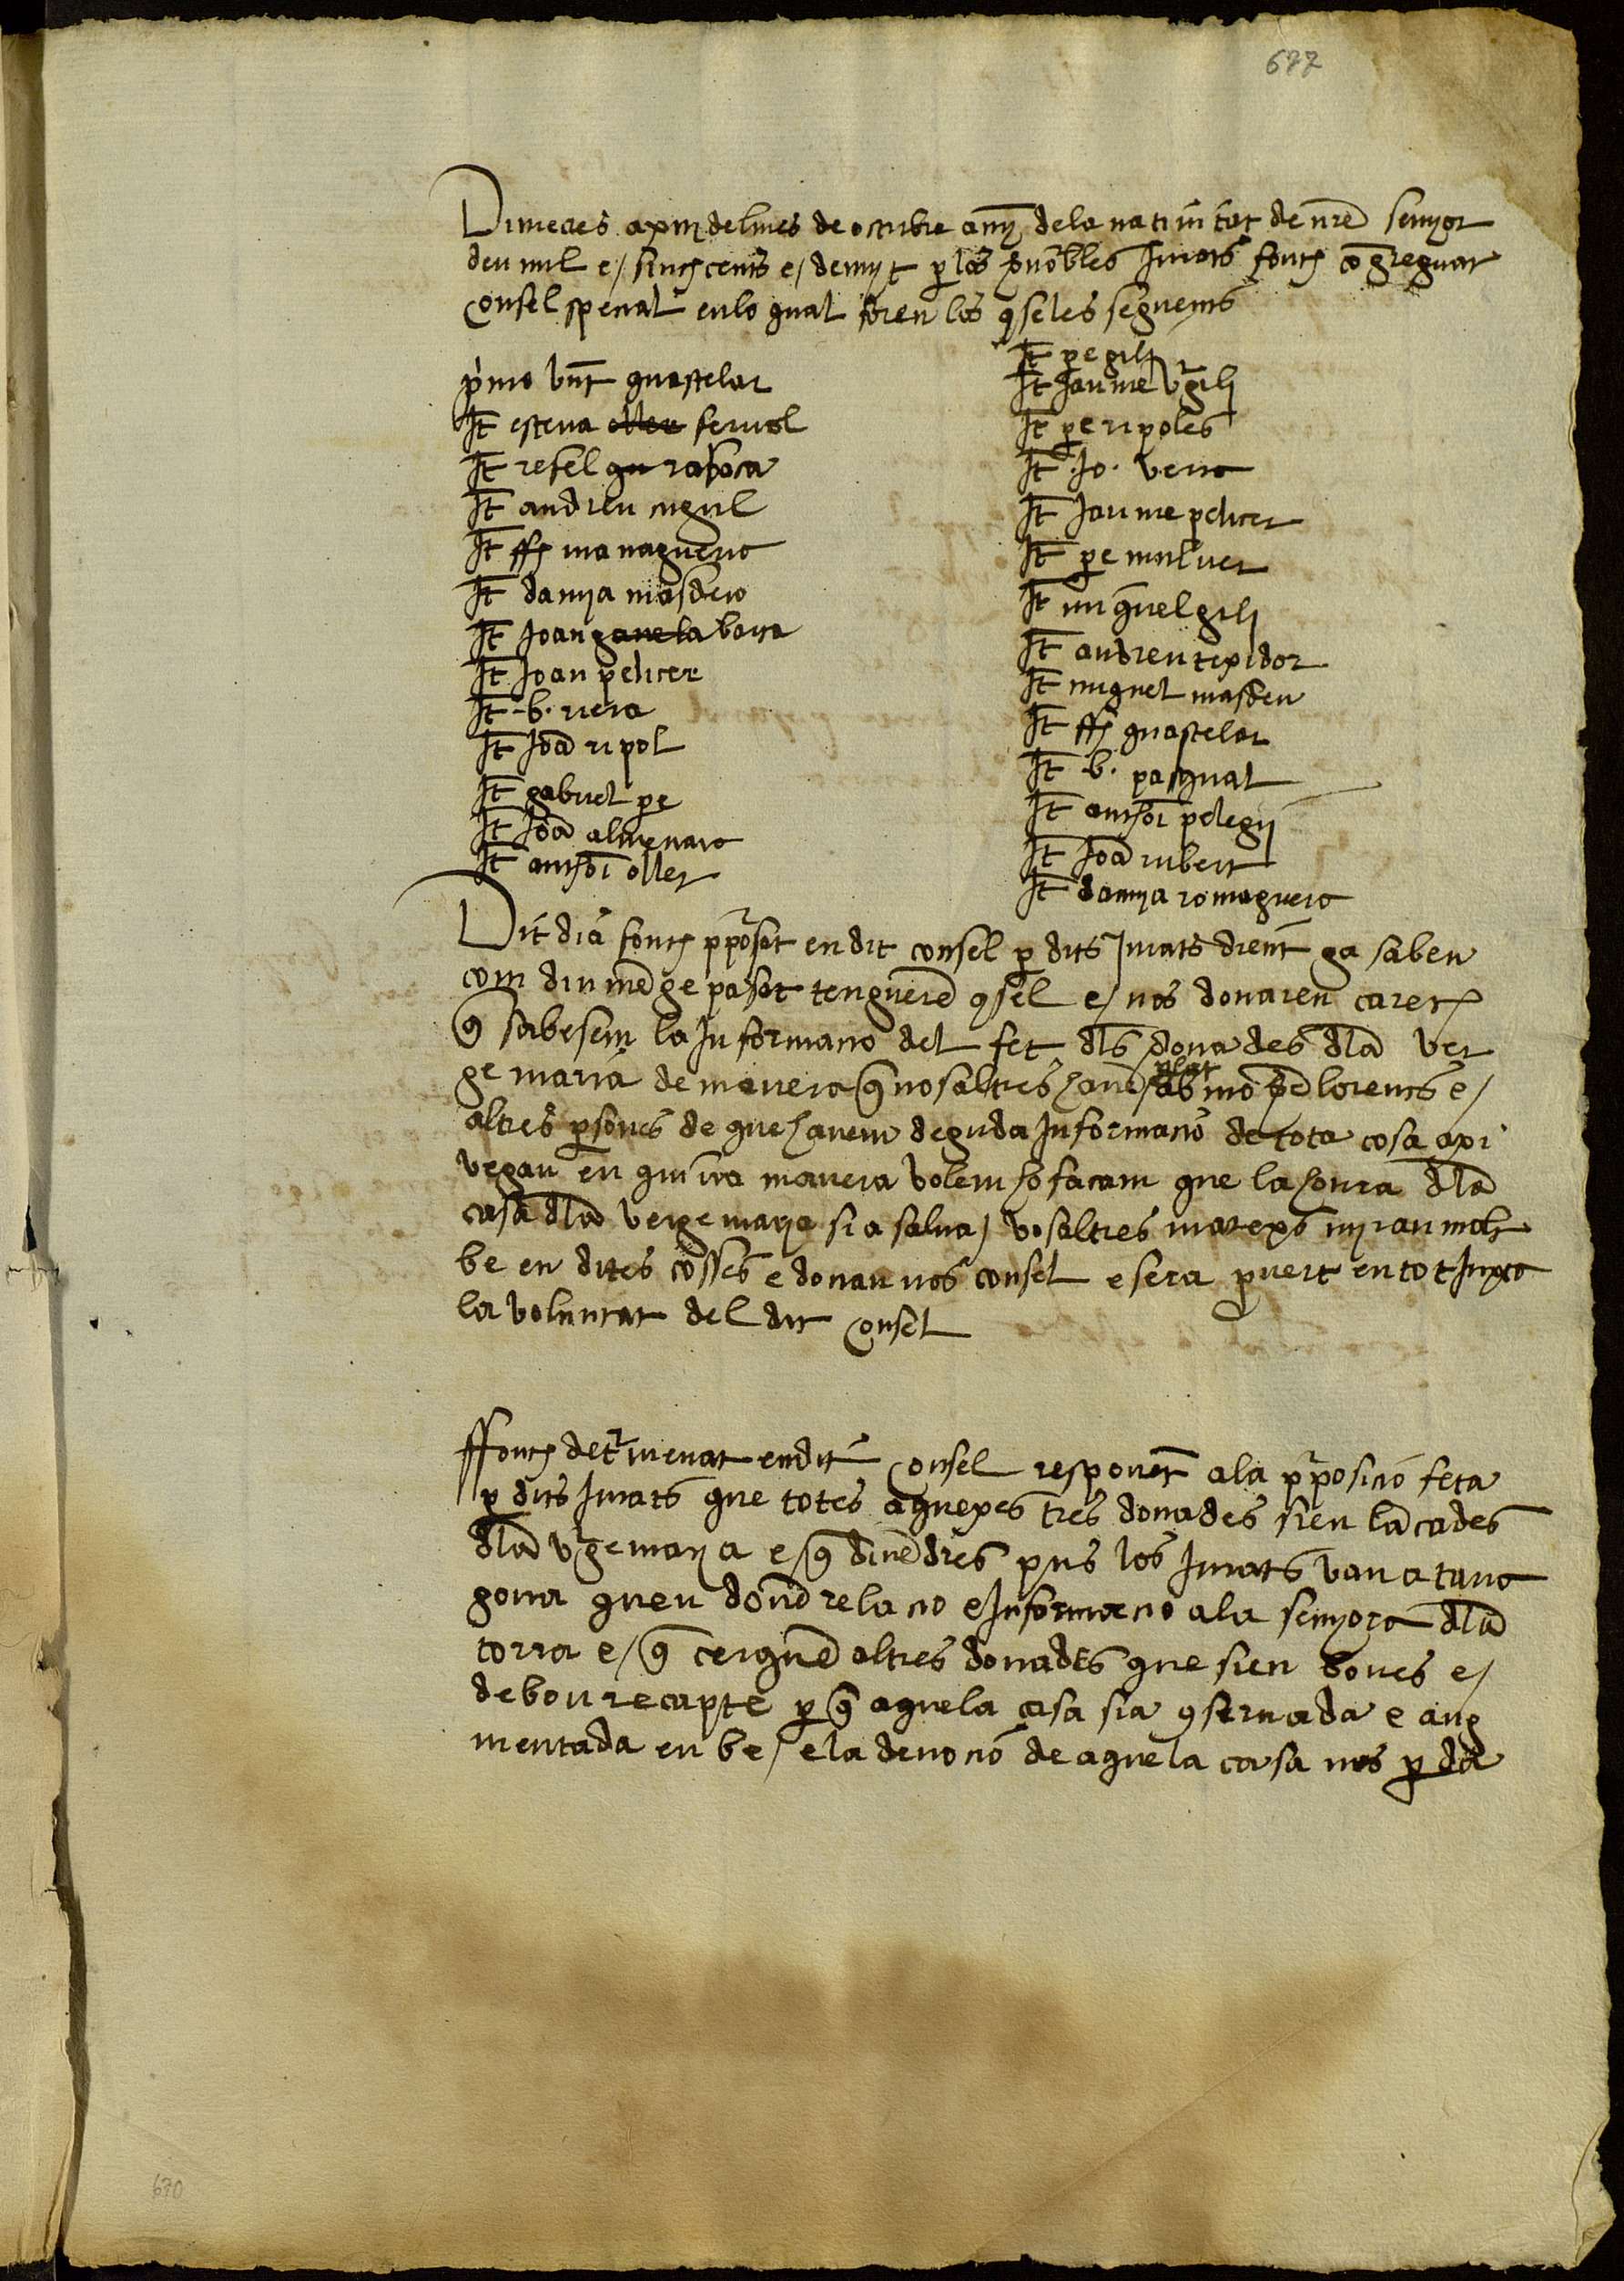 677
Dimecres a xvj del mes de octubre any de la nativitat de nr̄e senyor
deu mil e/ sinch cents e/ devuyt p los honōbles Jurats fonch cōgreguat
consel special en lo qual foren los 9seles seguents
pimo vnt guastelar
It esteva oller feruol
It rafel gu rabaça
It andreu cugul
It ffˢ managuera
It damya masdeu
It Joan gavela barca
It Joan pelicer
It .b. riera
It Joā ripol
It gabriel pe
It Joā almenara
It anthōi oller
It pe gili
It Jaume vgili
It pe ripoles
It .Jo. verra
It Jaume pelicer
It pe mulner
It miquel gili
It andreu texidor
It miquel masdeu
It ffˢ guastelar
It .b. pasqual
It anthōi pelegri
It Joā rubert
It damya romaguera
Dit dia fonch pposat en dit consel p dits Jurats dient ga saben
com diumēge pasat tenguerē 9sel e/ nos donaren carech
q̄ sabesem la Informacio del fet dls donades dlā ver
ge maria de manera q̄ nosaltres havē plat ab mo pe lorens e/
altres psones de que havem deguda Informacio de tota cosa axi
vegau en quinra manera volem ho façam que la honra dlā
casa dlā verge marya sia salua/ vosaltres matexs myrau molt
be en dites cosses e donau nos consel e sera pvert en tot Juxta
la voluntat del dit consel
ffonch determenat en dit consel responēt a la pposicio feta
p dits Jurats que totes aquexes tres donades sien lācades
dlā vge marya e/ q̄ divēdres pus los Jurats van a tarra
gona queu donē relacio e Informacio a la senyora dlā
torra e/ q̄ cerquē altres donades que sien bones e/
de bon recapte p q̄ aquela casa sia 9seruada e aug
mentada en be/ e la deuocio de aquela casa nos pda
670